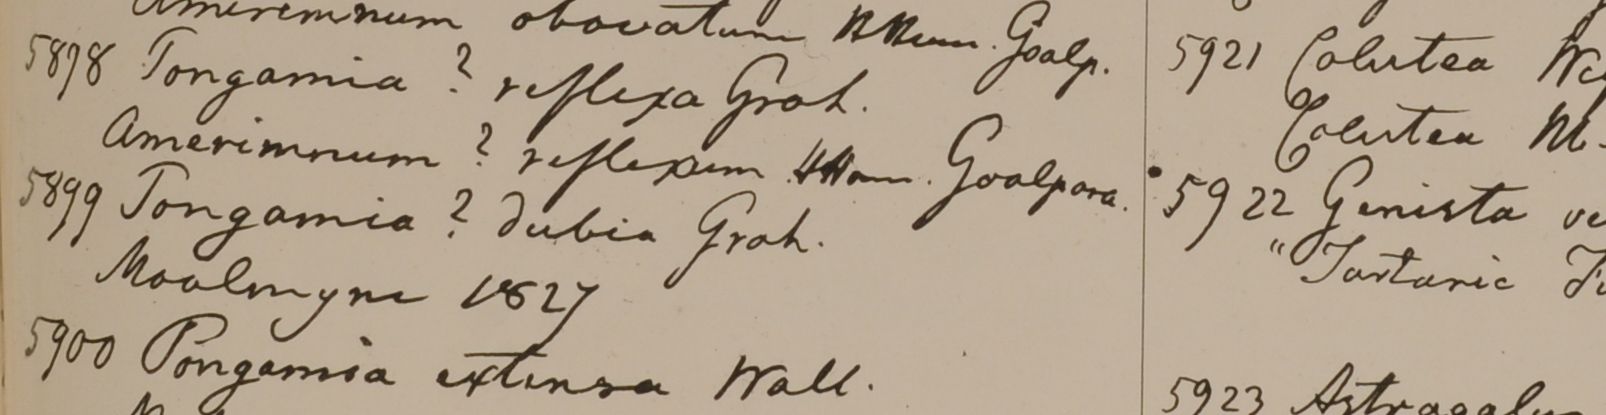 Amerimnum obovatum HHam. Goalp.
5898 Pongamia ? reflexa Grah.
Amerimnum ? reflexum HHam. Goalpara.
5899 Pongamia ? dubia Grah.
Moalmyne 1827
5900 Pongamia extensa Wall.
5921 Colutea
Colutea
5922 Genista
"Tartaric
5923 Astragal